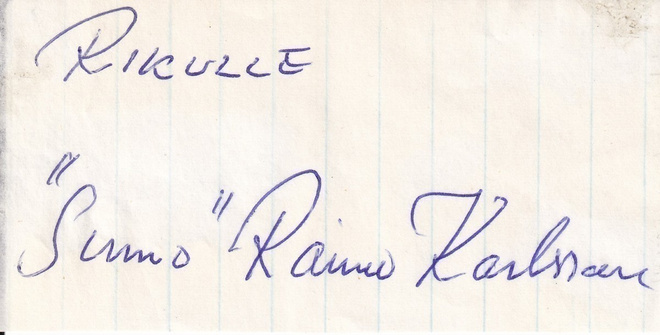 RIKULLE
"Sumo" Raimo Karlsson